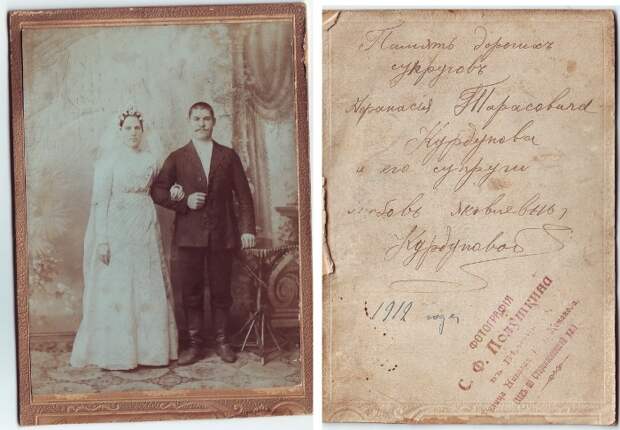 Память дорогихъ
супруговъ
Афанасія Тарасовича
Курдупова
и его супруги
Любовъ Яковлевны,
Курдуповой
1912 года
ФОТОГРАФІЯ
С. Ф. Полуткина
въ